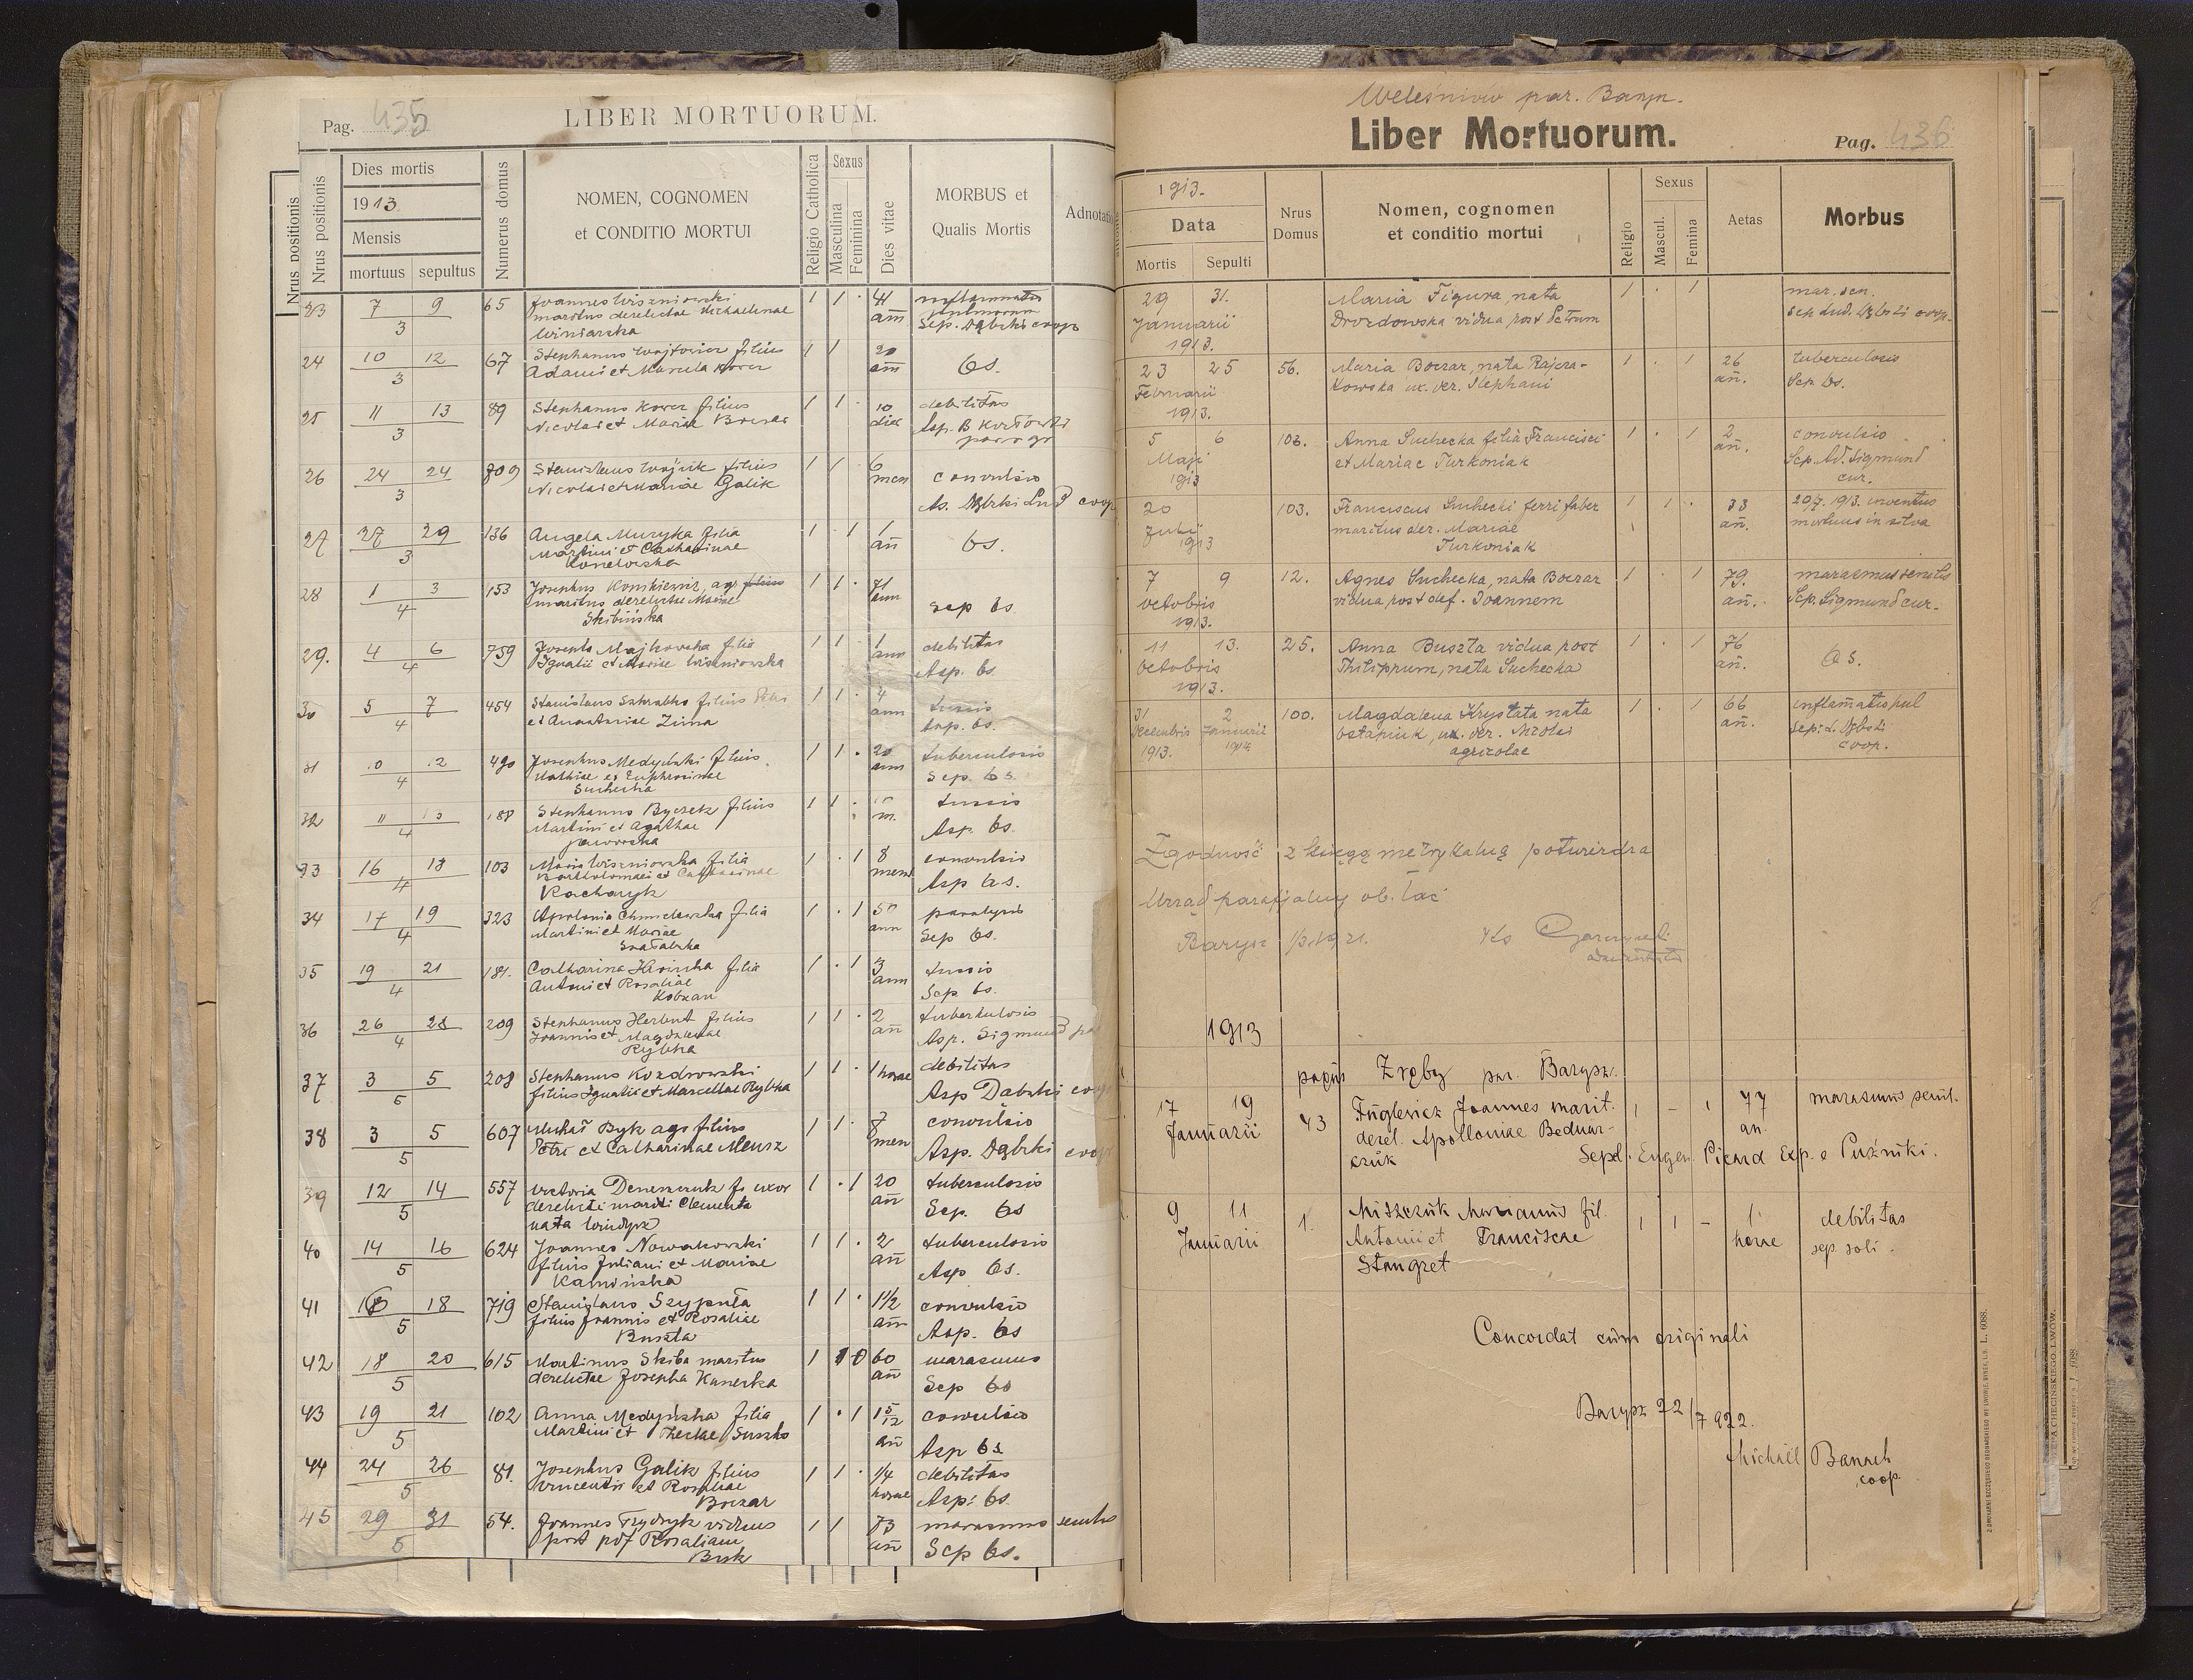 Pag. 435
LIBER MORTUORUM.
Nrus positionis
Nrus positionis
Dies mortis
1913
Mensis
mortuus sepultus
Numerus domus
NOMEN, COGNOMEN
et CONDITIO MORTUI
Religio Catholica
Sexus
Masculina
Feminina
Dies vitae
MORBUS et
Qualis Mortis
Adnotati
23 7 9 65 Joannes Wiszniowski 1 1 · 41
3 maritus derelictae Michaelinae ann
Winiarska Sep. Dąbrki coop
24 10 12 67 Stephanus Wojtowicz filius 1 1 20
3 Adami et Korcz ann bs.
25 11 13 89 Stephanus Korcz filius 1 1 · 10 debilitas
3 Nicolai et Mariae Boczar dies Asp. B
26 24 24 709 Stanislaus Wojcik filius 1 1 6
3 Nicolai et Mariae Galik men convulsio
As. Dąbrki Lud coop
27 27 29 136 Angela Muzyka filia 1 · 1 1
3 Martini et Catharinae ann bs.
28 1 3 153 Josephus agr filius 1 1 · 71
4 maritus derelictae Mariae ann sep bs
Skibińska
29. 4 6 759 Majkowska filia 1 1 1 debilitas
4 Ignatii et Mariae Wiszniowska ann Asp. bs
30 5 7 454 Stanislaus filius 1 1 · 4 tussis
4 et Anastasiae Zima ann Asp. bs.
31 490 Josephus Medyński filius 1 1 · 20 tuberculosis
4 Mathiae et Euphrosinae ann Sep. bs
Suchecka
32 11 188 Stephanus Byczek filius 1 1 · tussis
4 Martini et Agathae m. Asp. bs.
Jaworska
33 16 18 103 Maria Wiszniowska filia 1 · 1 8 convulsio
4 Bartholomaei et Catharinae mens Asp bs.
Kacharyk
34 17 19 323 Apolonia Chmielewska filia 1 · 1 50 paralysis
4 Martini et Mariae ann Sep bs.
35 19 21 181. Catharina filia 1 · 1 3 tussis
4 Antoni et Rosaliae ann Sep bs.
Kobzan
36 26 28 209 Stephanus Herbut filius 1 1 · 2 tuberkulosis
4 Joannis et Magdalenae ann Asp. Sigmund
Rybka
37 3 5 208 Stephanus Kozdrowski 1 1 · 1 horae debilitas
5 filius Ignatii et Marcellae Rybka Asp Dąbrki coop
38 3 5 607 Byk agr filius 1 1 · 7 convulsio
5 Petri et Catharinae men Asp. Dąbrki coop
39 12 14 557 Victoria uxor 1 · 1 20 tuberculosis
5 derelicti mariti Clementa ann Sep. bs
nata
40 14 16 624 Joannes Nowakowski 1 1 · 2 tuberculosis
5 filius Juliani et Mariae ann Asp bs.
Kamińska
41 18 719 Stanislaus Szypuła 1 1 · 1 1/2 convulsio
5 filius Joannis et Rosaliae ann Asp. bs
Buszta
42 18 20 615 Martinus Skiba maritus 1 1 0 60 marasmus
5 derelictae Josepha ann Sep bs
43 19 21 102 Anna Medyńska filia 1 · 1 1 5/12 convulsio
5 Martini et Theclae Suszko ann Asp bs
44 24 26 81. Josephus Galik filius 1 1 · 1/4 debilitas
5 Vincentii et Rosaliae horae Asp: bs.
Boczar
45 29 31 54. Joannes Frydryk viduus 1 1 73 marasmus senilis
5 post pdf Rosaliam ann Sep bs.
Weleśniów par. Barysz.
Liber Mortuorum. Pag. 436
1913.
Data
Mortis Sepulti
Nrus
Domus
Nomen, cognomen
et conditio mortui
Religio
Sexus
Mascul.
Femina
Aetas
Morbus
29 31. Maria Figura, nata 1 · 1 mar. sen.
Januarii Drozdowska vidua post Petrum Sep Lud. Dąbrki coop.
1913.
23 25 56. Maria Boczar, nata Rajcza- 1 · 1 26 tuberculosis
Februarii kowska ux. der. Stephani añ. Sep bs.
1913.
5 6 103. Anna Suchecka filia Francisci 1 · 1 2 convulsio
Maji et Mariae Turkoniak añ. Sep. Ad. Sigmund
1913 cur.
20 103. Franciscus Suchecki ferri faber 1 1 · 33 20/7. 1913. inventus
Julii maritus der. Mariae añ. mortuus in silva
1913 Turkoniak
7 9 12. Agnes Suchecka, nata Boczar 1 · 1 79. marasmus senilis
octobris vidua post def. Joannem añ. Sep. Sigmund cur.
1913.
11 13. 25. Anna Buszta vidua post 1 · 1 76 bs.
octobris Philippum, nata Suchecka añ.
1913.
31 2 100. Magdalena Krystata nata 1 · 1 66 inflamatio pul
Decembris Januarii Ostapiuk, ux. der. Nicolai añ. Sep: L. Dąbrki
1913. 1914 agricolae coop.
Zgodność z księgą metrykalną potwierdza
Urząd parafialny ob. łac
Barysz 1921. Ks
1913
pagus Zręby par. Barysz.
17 19 43 Joannes marit. 1 - 1 77 marasmus senil.
Januarii derel. Apolloniae Bednar- an.
czuk Sepel. Eugen. Picard Exp. e Puźniki.
9 11 1. Miszczuk Marianus fil. 1 1 - 1 debilitas
Januarii Antoni et Franciscae horae sep. soli.
Stangret
Concordat cum originali
Barysz 22/7 922.
Michaël Banach
coop.